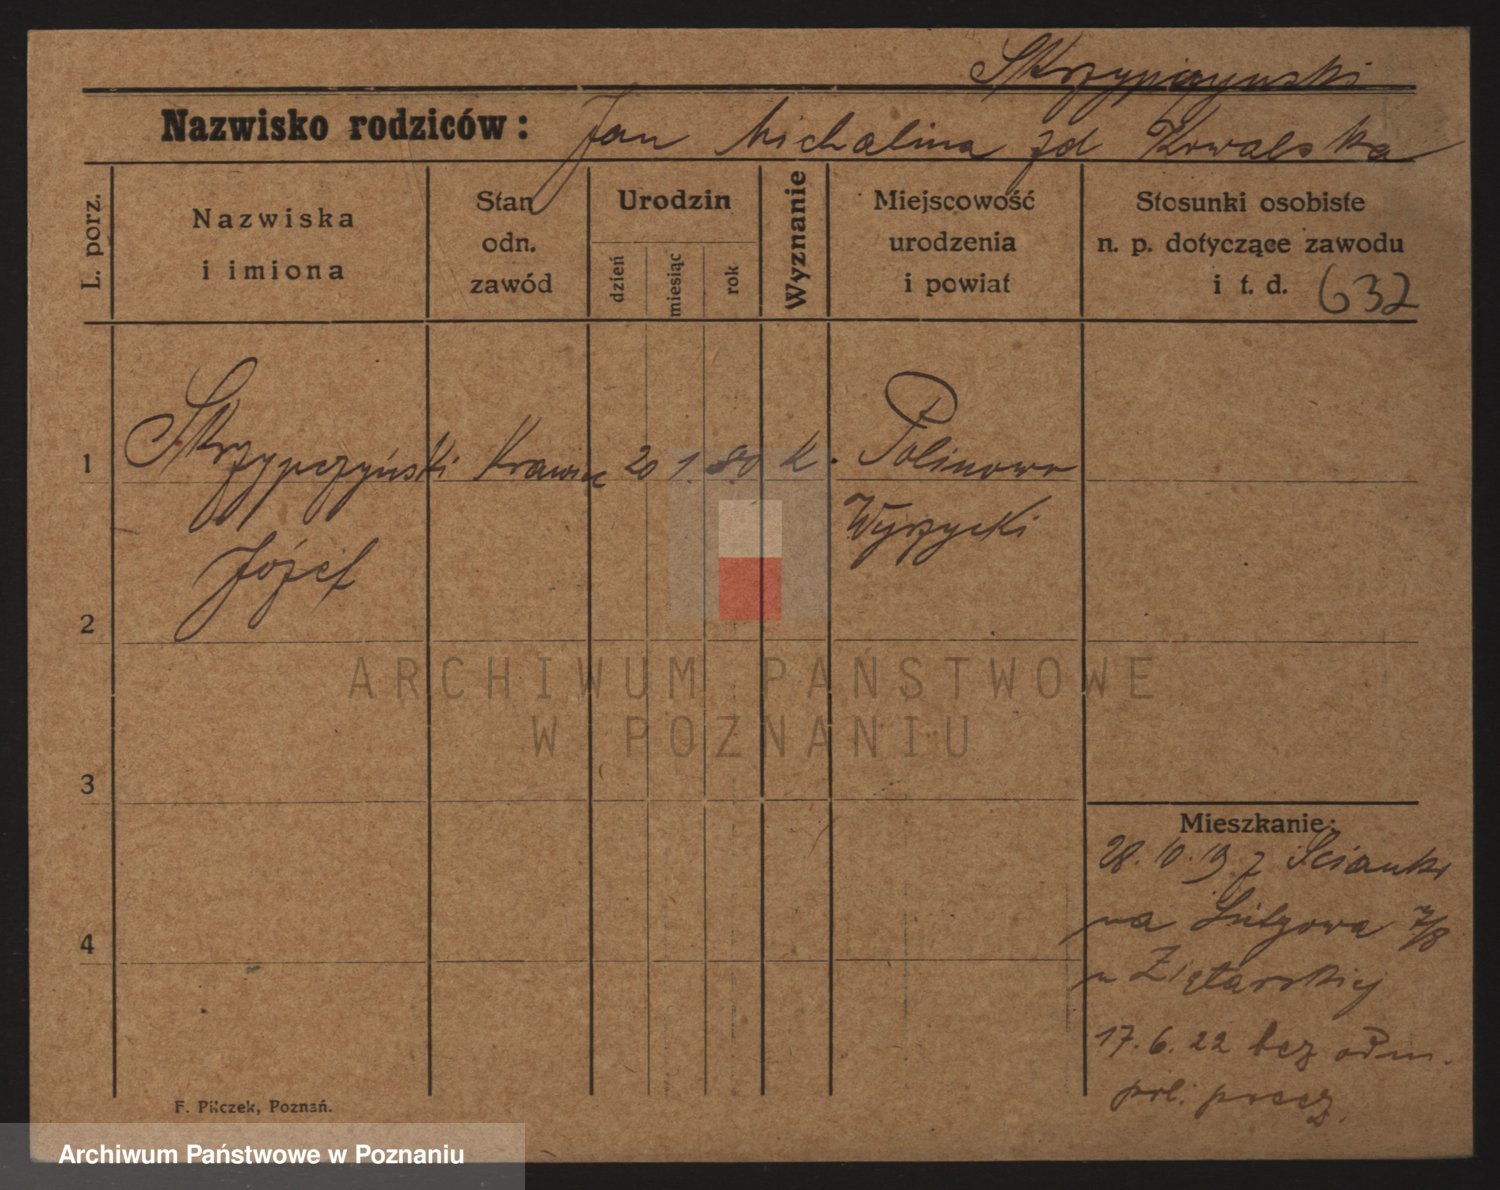 Skrzypczyński
Nazwisko rodziców: Jan Michalina zd Kowalska
L. porz.
Nazwiska
i imiona
Stan
odn.
zawód
Urodzin
dzień
miesiąc
rok
Wyznanie
Miejscowość
urodzenia
i powiat
Stosunki osobiste
n. p. dotyczące zawodu
i t. d. 632
1 Skrzypczyński Krawiec 20 1 80 K. Polinowo
Wyrzycki
Józef
2
ARCHIWUM PAŃSTWOWE
W POZNANIU
3
Mieszkanie:
28.10.19 z Ścianki
na 7/8
4
u Ziętarskiej
17.6.22 bez odm.
pol. precz.
F. Pilczek, Poznań.
Archiwum Państwowe w Poznaniu